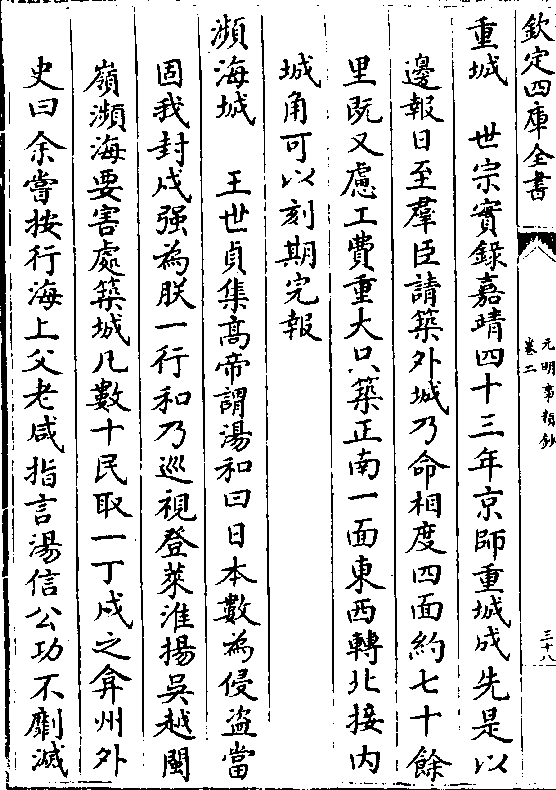 欽定四庫全書
元明事類鈔
卷二
三十八
重城　世宗實錄嘉靖四十三年京師重城成先是以
邊報日至羣臣請築外城乃命相度四面約七十餘
里既又慮工費重大只築正南一面東西轉北接內
城角可以刻期完報
瀕海城　王世貞集髙帝謂湯和曰日本數為侵盜當
固我封戍强為朕一行和乃巡視登萊淮揚吳越閩
嶺瀕海要害處築城凡數十民取一丁戍之弇州外
史曰余嘗按行海上父老咸指言湯信公功不劘滅